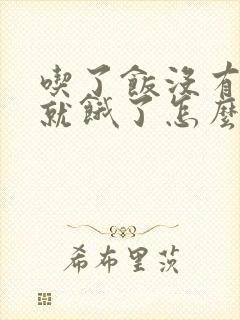 喫了飯沒有
就餓了怎麼
希布里茨